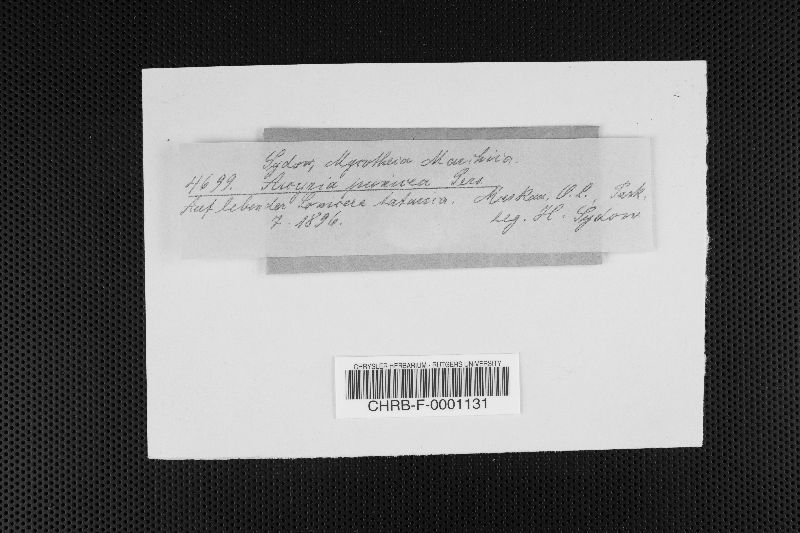 Sydow, Mycotheia Marchica.
4699. Arcyria punicea Pers
Auf lebender Lonicera tatarica. Muskau, O.L., Park.
7. 1896. leg. H. Sydow
CHRYSLER HERBARIUM - RUTGERS UNIVERSITY
CHRB-F-0001131